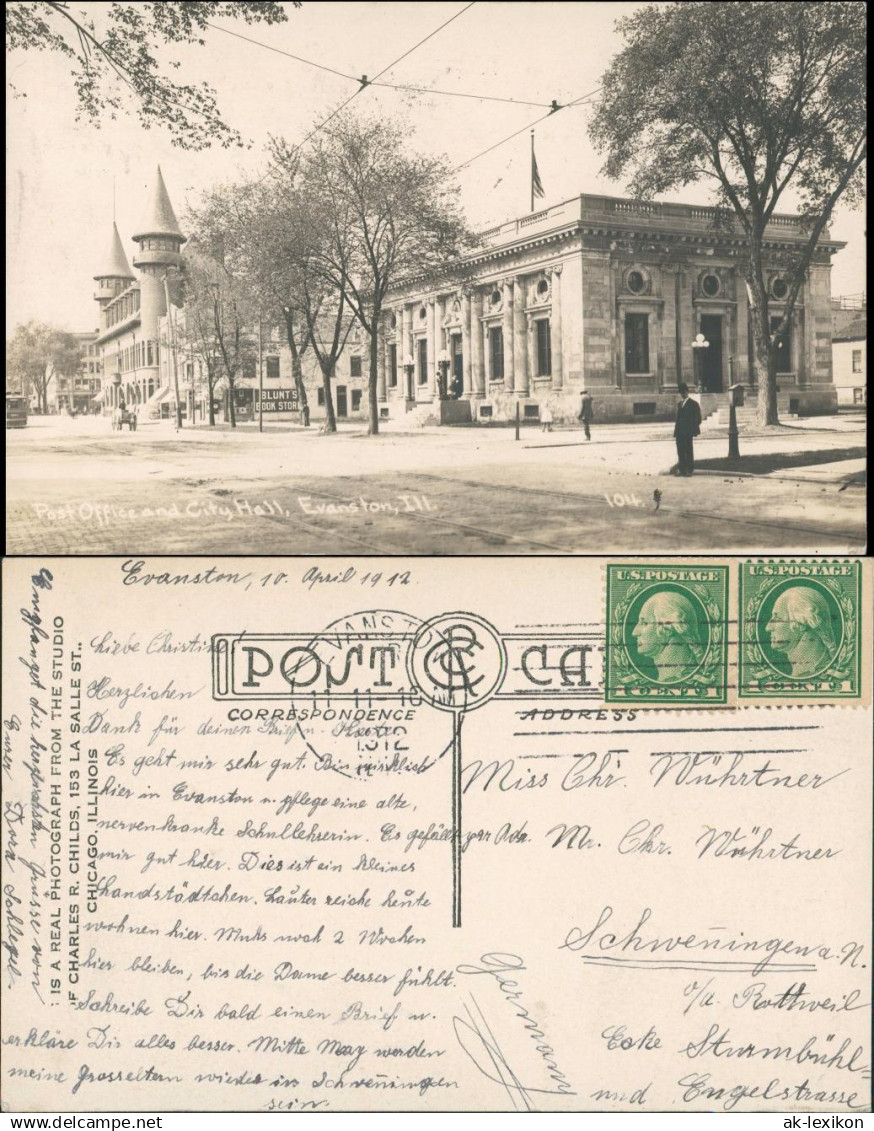 BLUNT'S
BOOK STORE
Post Office and City Hall, Evanston, Ill.
104.
Evanston, 10. April 1912.
POST CARD
CORRESPONDENCE
ADDRESS
EVANSTON
1912
U.S. POSTAGE
1 CENT 1
U.S. POSTAGE
1 CENT 1
Liebe Christine!
Herzlichen
Dank für deinen Brief u. Karte.
Es geht mir sehr gut. Bin wirklich
hier in Evanston u. pflege eine alte,
nervenkranke Schullehrerin. Es gefällt
mir gut hier. Dies ist ein kleines
Landstädtchen. Lauter reiche Leute
wohnen hier. Muss noch 2 Wochen
hier bleiben, bis die Dame besser fühlt.
Schreibe Dir bald einen Brief u.
erkläre Dir alles besser. Mitte May werden
meine Grosseltern wieder in Schweningen
sein.
Empfanget die herzlichsten Grüsse von
Eurer Dora Schlegel.
IS A REAL PHOTOGRAPH FROM THE STUDIO
OF CHARLES R. CHILDS, 153 LA SALLE ST.,
CHICAGO, ILLINOIS
Miss Chr. Wührtner
per Adr. Mr. Chr. Wührtner
Schweningen a. N.
o/a Rottweil
Ecke Sturmbühl-
und Engelstrasse
Germany
www.ak-lexikon.de
ak-lexikon.com